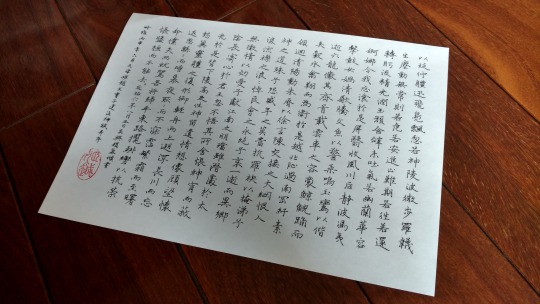 以延佇體迅飛鳧飄忽若神陵波微步羅韈
生塵動無常則若危若安進止難期若往若還
轉眄流精光潤玉顏含辭未吐氣若幽蘭華容
婀娜令我忘飡於是屏翳收風川后靜波馮夷
擊鼓女媧清歌騰文魚以警乘鳴玉鸞以偕
逝六龍儼其齊首載雲車之容裔鯨鯢踊而
夾轂水禽翔而為衛於是越北沚過南岡紆素
領迴清陽動朱脣以徐言陳交接之大綱恨人
神之道殊兮怨盛年之莫當抗羅袂以掩涕兮
淚流襟之浪浪悼良會之永絕兮哀一逝而異鄉
無微情以效愛兮獻江南之明璫雖潛處於太
陰長寄心於君王忽不悟其所舍悵神宵而蔽
光於是背下陵高足往神留遺情想像顧望懷
愁冀靈體之復形御輕舟而上遡浮長川而忘
返思綿綿而增慕夜耿耿而不寐霑繁霜而至曙
命僕夫而就駕吾將歸乎東路攬騑轡以抗策
悵盤桓而不能去